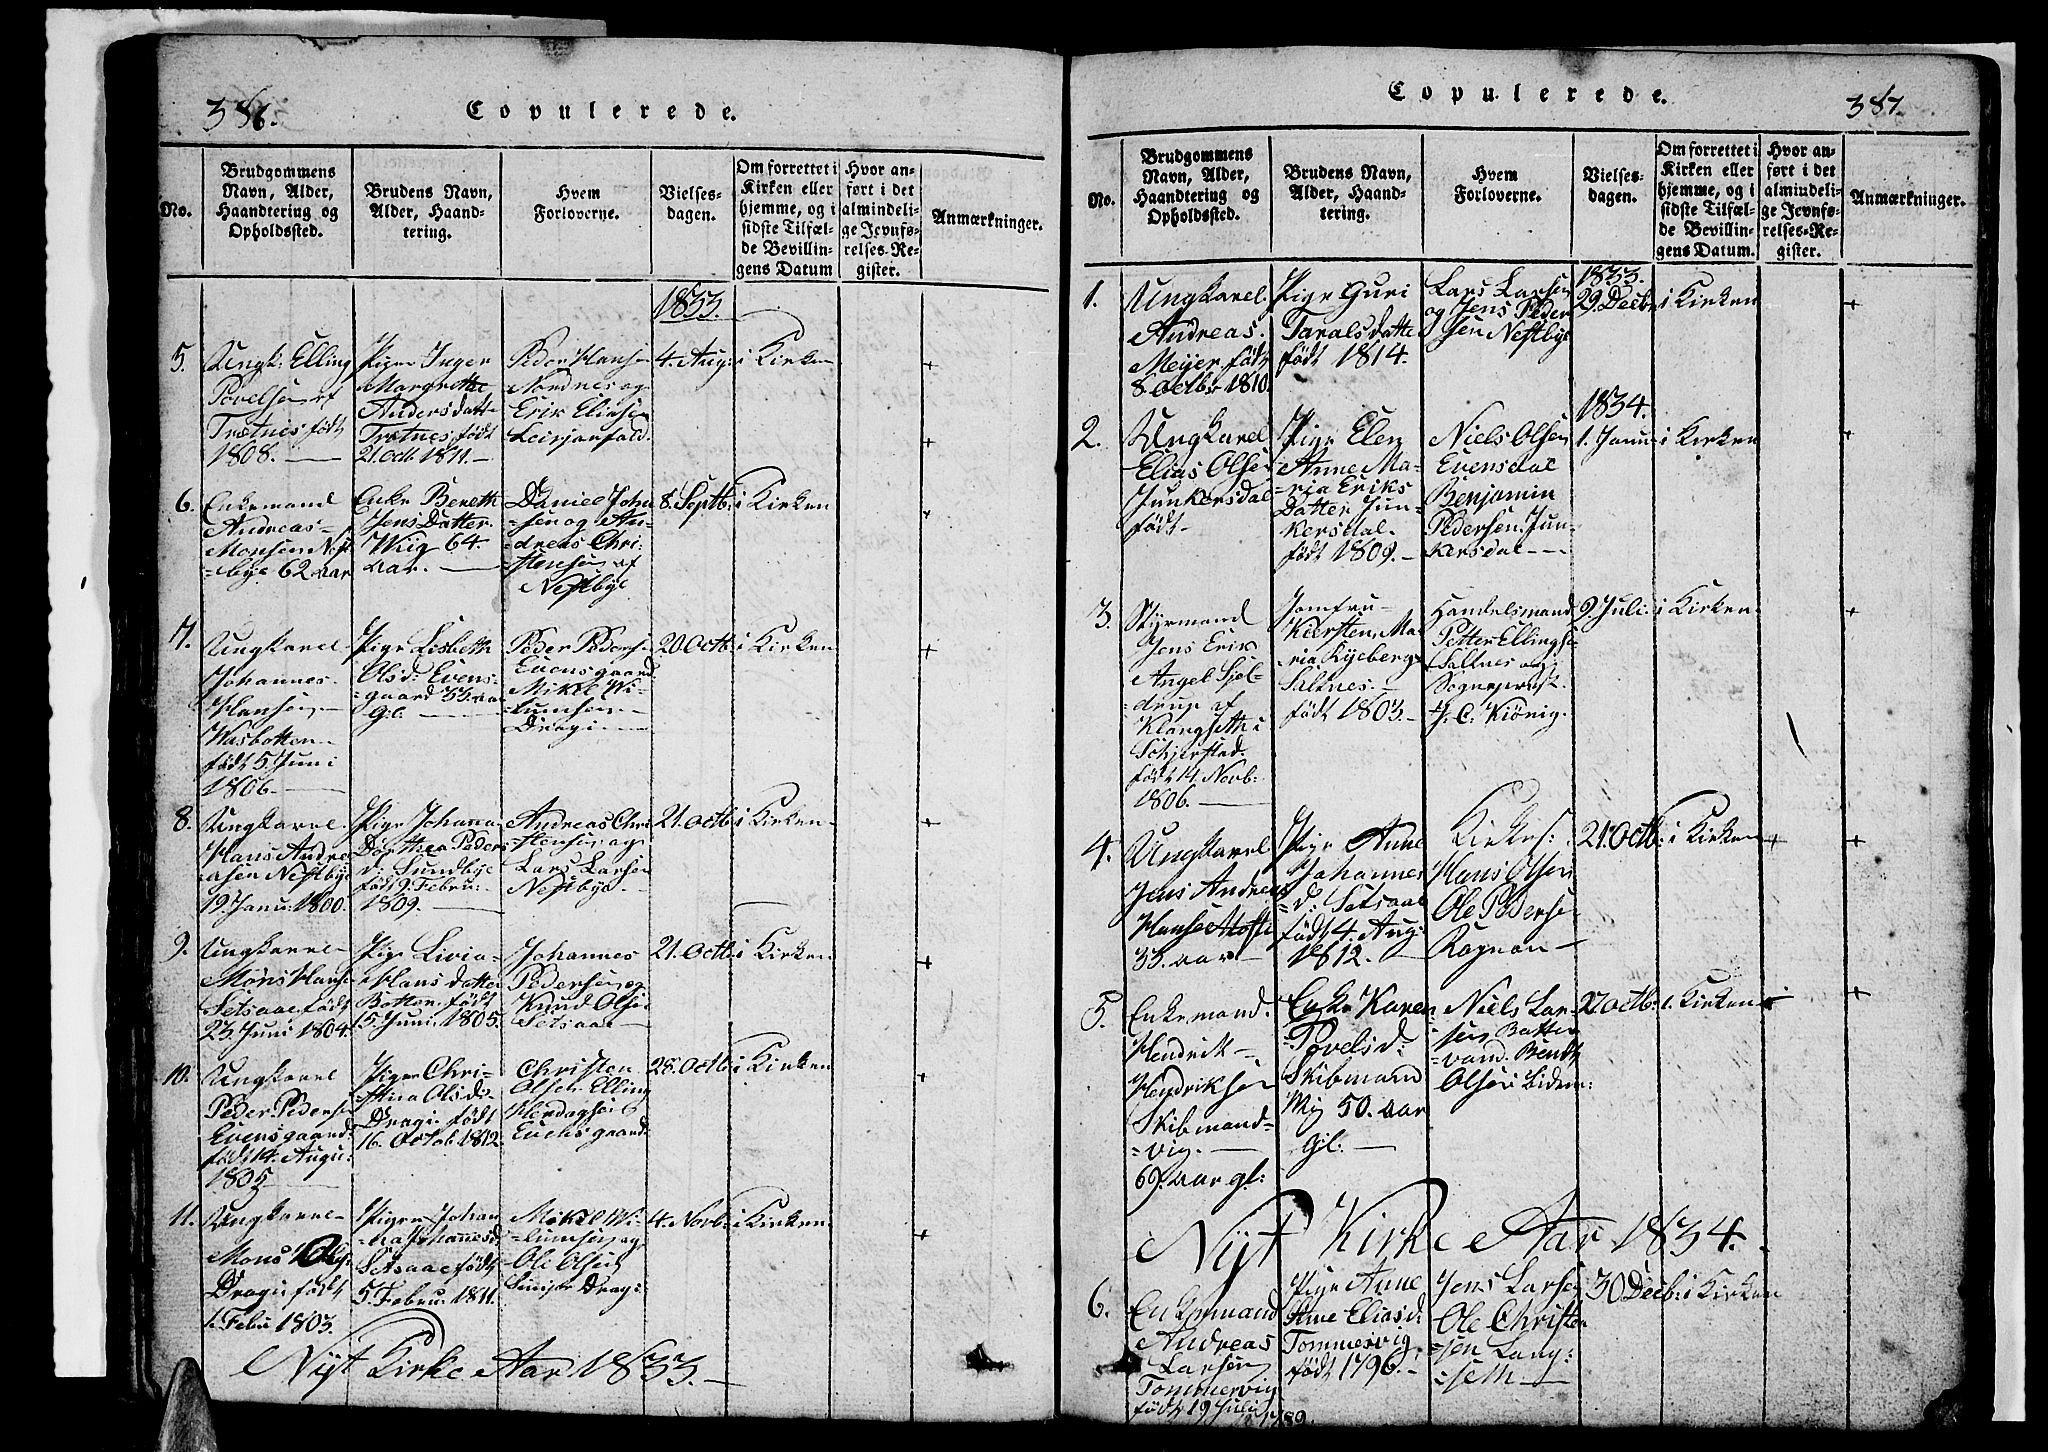 386.
Copulerede.
No.
Brudgommens
Navn, Alder,
Haandtering og
Opholdssted.
Brudens Navn,
Alder, Haand-
tering.
Hvem
Forloverne.
Vielses-
dagen.
Om forrettet i
Kirken eller
hjemme, og i
sidste Tilfæl-
de Bevillin-
gens Datum
Hvor an-
ført i det
almindeli-
ge Jevnfø-
relses-Re-
gister.
Anmærkninger.
1833.
5.
Ungk: Elling
Povelsen af
Trætnes født
1808.
Pige Inger
Margrethe
Andersdatt
Trætnes født
21. Octb 1811.
Peder Hansen
Nordnes og
Erik Eliasen
Leirjanfald.
4. Aug:
i Kirken
+
6.
Enkemand
Andreas
Monsen Nest
=bye 62 aar
Enke Bereth
Jens Datter
Wiig 64
aar.
Daniel John
=sen og An=
=dreas Chri=
=stensen af
Nestbye
8. Septb:
i Kirken
+
7.
Ungkarel
Johannes
Hansen
Wasbotten
født 5 Juni
1806.
Pige Lisbeth
Olsd: Evens=
=gaard 33 aar
Gl.
Peder Peders:
Evensgaard
Mikel Wi=
=lumsen
Dragi
20 Octb:
i Kirken
+
8.
Ungkarel
Hans Andre
asen Nestbye
19. Janu: 1800.
Pige Johanna
Dorthea Peders
d: Sundbye
født 9 Febru:
1809.
Andreas Chri
=stensen og
Lars Larsen
Nestbye.
21. Octb:
i Kirken
+
9.
Ungkarel
Mons Hans:
Setsaae født
23 Juni 1804.
Pige Livia
Hansdatter
Botten født
15 Juni 1805.
Johannes
Pedersen og
Knud Olsen
Setsaae
21. Octb:
i Kirken
+
10.
Ungkarel
Peder Peders:
Evensgaard
født 14. Augu:
1805
Pige Chri=
=stina Olsd:
Dragi født
16. Octob. 1812.
Christen
Olsen Elling
Herdagsen
Evensgaard.
28. Octb:
i Kirken
+
11.
Ungkarel
Mons Ols:
Dragi født
1. Febu 1803.
Pige Johan
=na Johannesd:
Setsaae født
5 Febru 1811.
Mikel Wi=
=lumsen og
Ole Olsen
Dragi:
4. Novb:
i Kirken
+
Nyt Kirke Aar 1833.
387.
Copulerede.
No.
Brudgommens
Navn, Alder,
Haandtering og
Opholdssted.
Brudens Navn,
Alder, Haand-
tering.
Hvem
Forloverne.
Vielses-
dagen.
Om forrettet i
Kirken eller
hjemme, og i
sidste Tilfæl-
de Bevillin-
gens Datum.
Hvor an-
ført i det
almindeli-
ge Jevnfø-
relses-Re-
gister.
Anmærkninger.
1.
Ungkarel
Andreas
Meyer født
8. Octbr 1810.
Pige Guri
Taralsdatte
født 1814.
Lars Larsen
og Jens Peder
sen Nestbye
1833.
29. Decbr
i Kirken
+
2.
Ungkarel
Elias Olsen
Junkersdal
født
Pige Elen
Anne Ma=
=ria Eriks
Datter Jun=
kersdal
født 1809.
Niels Olsen
Evensdal
Benjamin
Pedersen Jun=
kersdal
1834.
1. Janu:
i Kirken
+
3.
Styrmand
Jens Erik
Angel Sjol=
=drup af
Klongseth i
Schjerstad
født 14. Novb:
1806.
Jomfru
Kiersten Ma
ria Kyeberg
Saltnes.
født 1803.
Handelsmand
Petter Ellings:
Saltnes og
Sognepræst
J. C. Kiönig.
9. Juli:
i Kirken
+
4.
Ungkarel
Jens Andreas
33 aar
Pige Anne
Johannes
=d: Setsaae
født 4 Aug:
1812.
Kirkes:
Hans Olsen
Ole Pedersen
Rognan
21. Octb:
i Kirken
+
+
5.
Enkemand
Hendrik
Hendriksen
Skibmand=
=vig.
69. aar gl:
Enke Karen
Povelsd:
Skibmand
Wig 50. aar
Gl.
Niels Lar=
=sen Batten
=vand. Bendt
Olsen Lidem:
27. Octb:
i Kirken
+
Nyt Kirke Aar 1834.
6.
Enkemand
Andreas
Larsen
Tommervig
født 19 Juli
1789.
Pige Anne
Stine Eliasd.
Tommervig
født 1796.
Jens Larsen
Ole Christen
=sen Lang=
=seth
30 Decb:
i Kirken